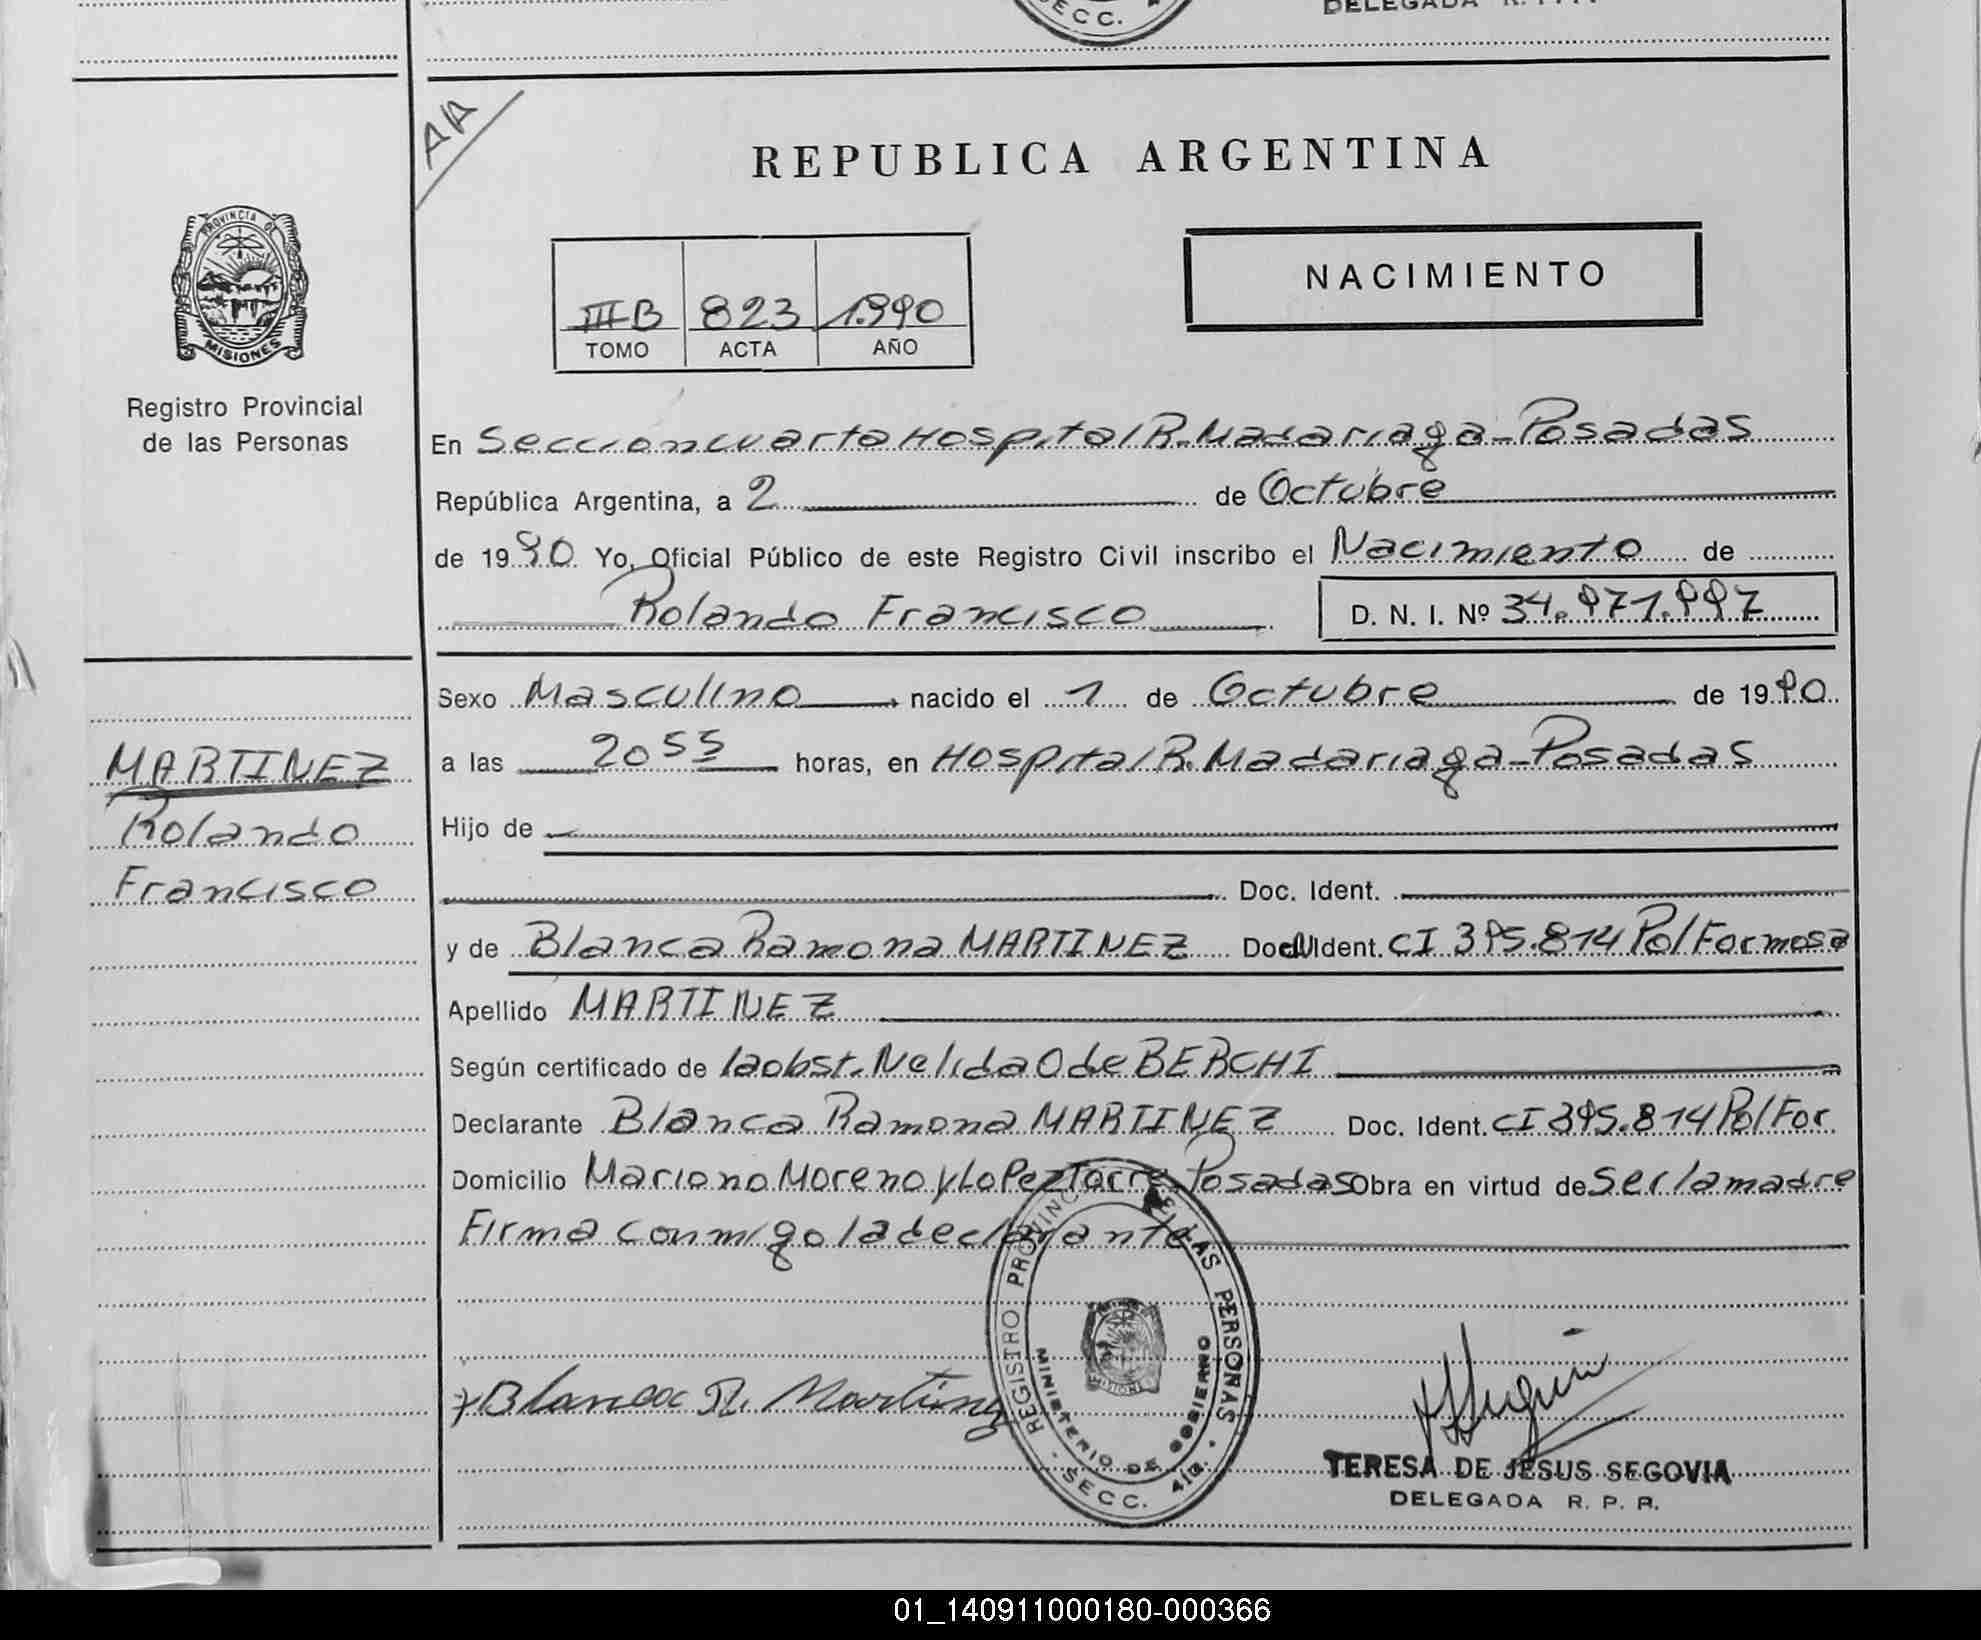 SECC.
DELEGADA R. P. P.
AA
REPUBLICA ARGENTINA
PROVINCIA DE
MISIONES
Registro Provincial
de las Personas
III B 823 1.990
TOMO ACTA AÑO
NACIMIENTO
En Seccion cuarta Hospital R. Madariaga - Posadas
República Argentina, a 2 de Octubre
de 1990 Yo, Oficial Público de este Registro Civil inscribo el Nacimiento de
Rolando Francisco
D. N. I. Nº 34.971.997
Sexo Masculino nacido el 1 de Octubre de 1990
a las 20 55 horas, en Hospital R. Madariaga - Posadas
Hijo de
y Doc. Ident.
y de Blanca Ramona MARTINEZ Doc. Ident. CI 395.814 Pol Formosa
Apellido MARTINEZ
Según certificado de la obst. Nelida O de BERCHI
Declarante Blanca Ramona MARTINEZ Doc. Ident. CI 395.814 Pol For
Domicilio Mariano Moreno y Lopez Torre Posadas Obra en virtud de ser la madre
Firma conmigo la declarante
MARTINEZ
Rolando
Francisco
Blanca R. Martinez
REGISTRO PROVINCIAL DE LAS PERSONAS
MINISTERIO DE GOBIERNO
SECC. 4ta.
TERESA DE JESUS SEGOVIA
DELEGADA R. P. P.
01_140911000180-000366